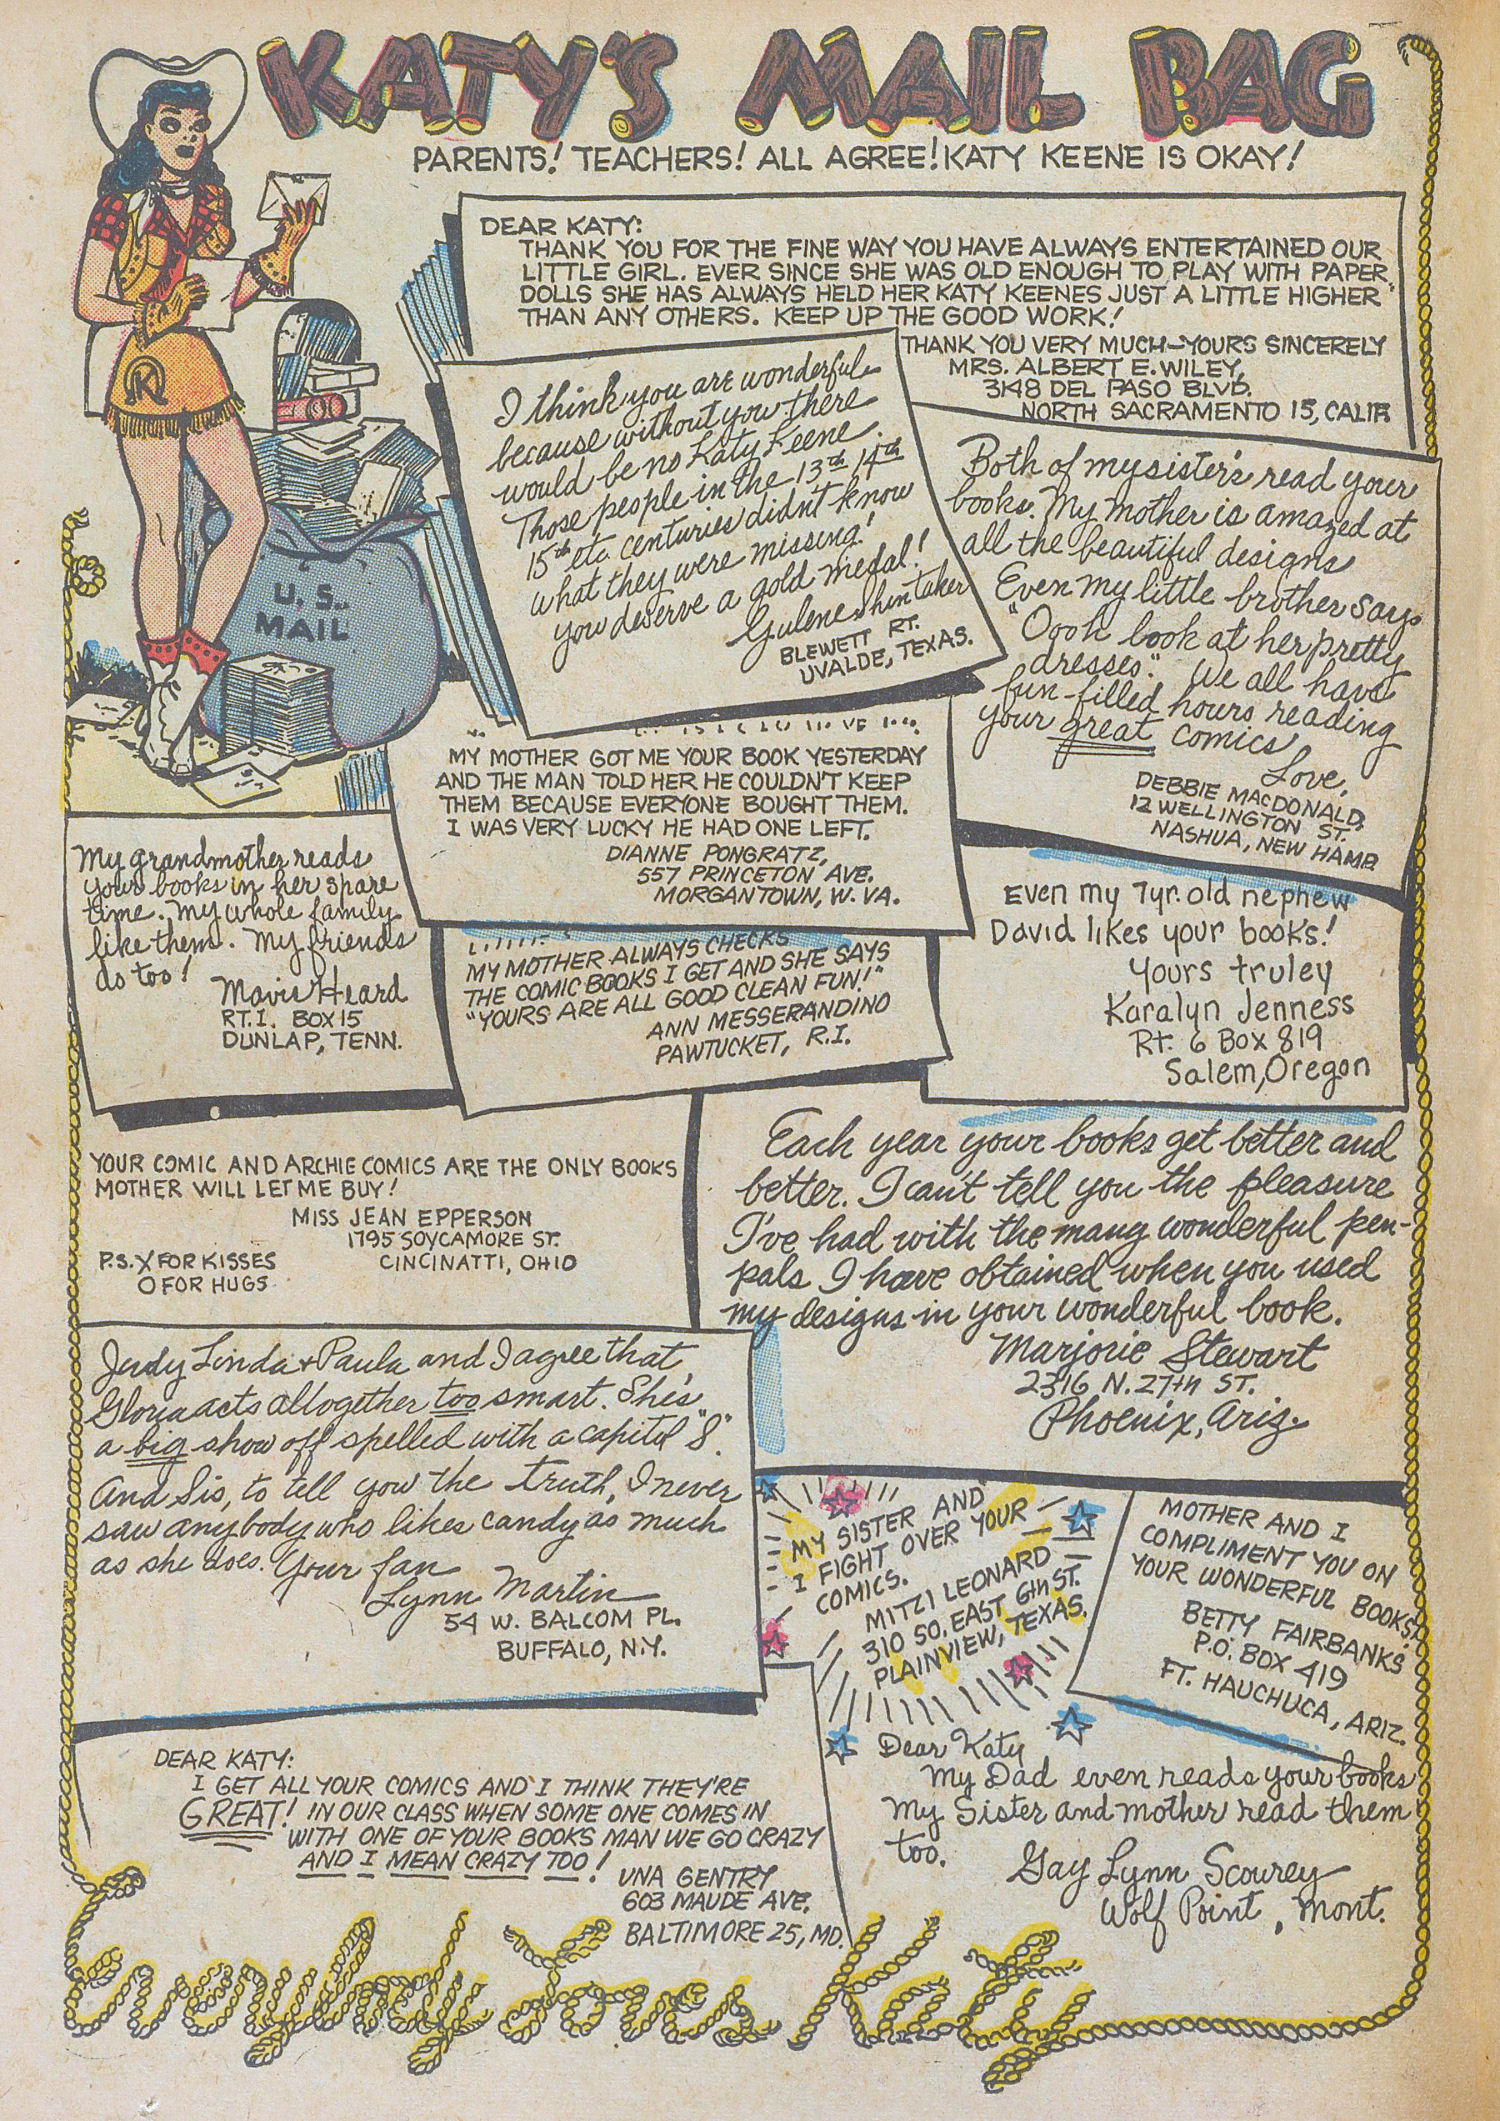 KATY'S MAIL BAG
PARENTS! TEACHERS! ALL AGREE! KATY KEENE IS OKAY!
DEAR KATY:
THANK YOU FOR THE FINE WAY YOU HAVE ALWAYS ENTERTAINED OUR
LITTLE GIRL. EVER SINCE SHE WAS OLD ENOUGH TO PLAY WITH PAPER
DOLLS SHE HAS ALWAYS HELD HER KATY KEENES JUST A LITTLE HIGHER
THAN ANY OTHERS. KEEP UP THE GOOD WORK!
THANK YOU VERY MUCH—YOURS SINCERELY
MRS. ALBERT E. WILEY,
3148 DEL PASO BLVD.
NORTH SACRAMENTO 15, CALIF.
K
U.S.
MAIL
I think you are wonderful
because without you there
would be no Katy Keene
Those people in the 13th 14th
15th etc. centuries didn't know
what they were missing!
you deserve a gold medal!
Gulene Shintaker
BLEWETT RT.
UVALDE, TEXAS.
Both of my sister's read your
books. My mother is amazed at
all the beautiful designs
Even my little brother says
"Oooh look at her pretty
dresses." We all have
fun-filled hours reading
your great comics
Love,
DEBBIE MACDONALD,
12 WELLINGTON ST.
NASHUA, NEW HAMP.
MY MOTHER GOT ME YOUR BOOK YESTERDAY
AND THE MAN TOLD HER HE COULDN'T KEEP
THEM BECAUSE EVERYONE BOUGHT THEM.
I WAS VERY LUCKY HE HAD ONE LEFT.
DIANNE PONGRATZ,
557 PRINCETON AVE.
MORGANTOWN, W. VA.
My grandmother reads
your books in her spare
time. My whole family
like them. My friends
do too!
Mavis Heard
RT. 1. BOX 15
DUNLAP, TENN.
MY MOTHER ALWAYS CHECKS
THE COMIC BOOKS I GET AND SHE SAYS
"YOURS ARE ALL GOOD CLEAN FUN!"
ANN MESSERANDINO
PAWTUCKET, R.I.
Even my 7yr. old nephew
David likes your books!
Yours truley
Karalyn Jenness
Rt. 6 Box 819
Salem, Oregon
YOUR COMIC AND ARCHIE COMICS ARE THE ONLY BOOKS
MOTHER WILL LET ME BUY!
MISS JEAN EPPERSON
1795 SOYCAMORE ST.
CINCINATTI, OHIO
P.S. X FOR KISSES
O FOR HUGS
Each year your books get better and
better. I can't tell you the pleasure
I've had with the many wonderful pen-
pals I have obtained when you used
my designs in your wonderful book.
Marjorie Stewart
2316 N. 27TH ST.
Phoenix, Ariz.
Judy Linda + Paula and I agree that
Gloria acts altogether too smart. She's
a big show off spelled with a capitol "S".
And Sis, to tell you the truth, I never
saw anybody who likes candy as much
as she does. Your fan
Lynn Martin
54 W. BALCOM PL.
BUFFALO, N.Y.
MY SISTER AND
I FIGHT OVER YOUR
COMICS.
MITZI LEONARD
310 SO. EAST 6TH ST.
PLAINVIEW, TEXAS.
MOTHER AND I
COMPLIMENT YOU ON
YOUR WONDERFUL BOOKS!
BETTY FAIRBANKS
P.O. BOX 419
FT. HAUCHUCA, ARIZ.
DEAR KATY:
I GET ALL YOUR COMICS AND I THINK THEY'RE
GREAT! IN OUR CLASS WHEN SOME ONE COMES IN
WITH ONE OF YOUR BOOKS MAN WE GO CRAZY
AND I MEAN CRAZY TOO!
UNA GENTRY
603 MAUDE AVE.
BALTIMORE 25, MD.
Dear Katy
My Dad even reads your books
My Sister and mother read them
too.
Gay Lynn Scourey
Wolf Point, Mont.
Everybody Loves Katy